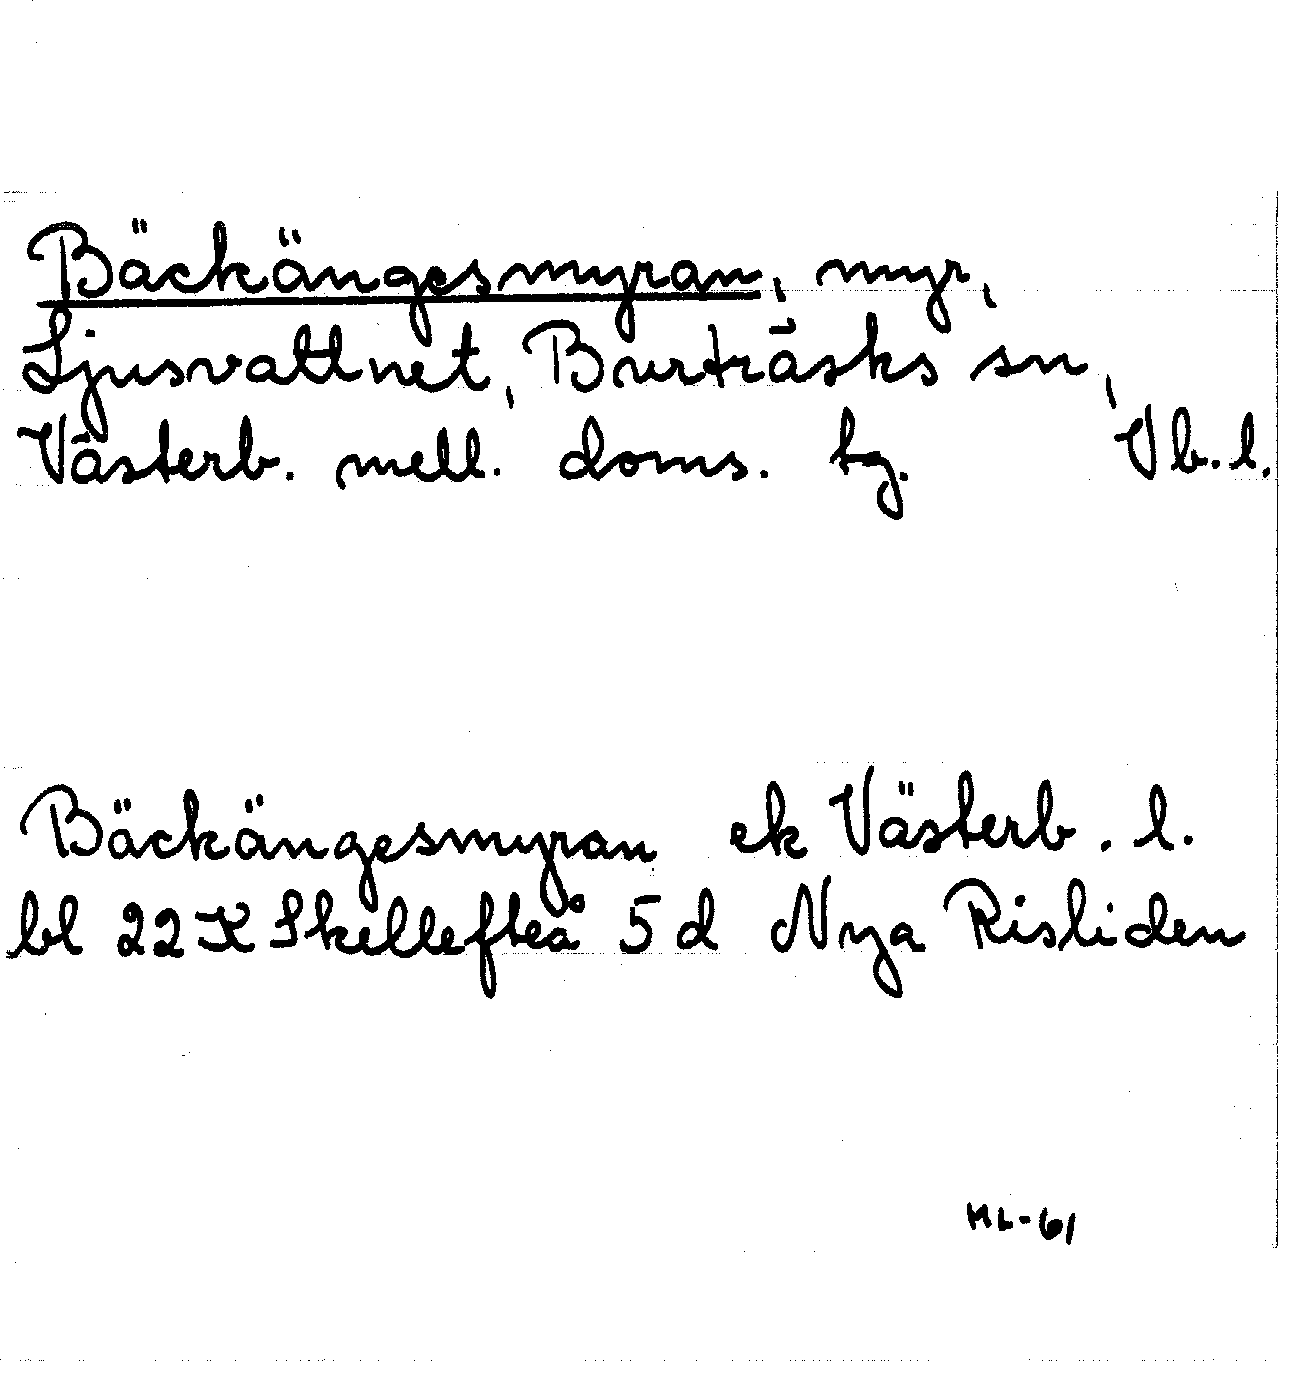 Bäckängesmyran, myr,
Ljusvattnet, Burträsks sn,
Västerb. mell. doms. tg. Vb. l.
Bäckängesmyran ek Västerb. l.
bl 22 K Skellefteå 5 d Nya Risliden
HL-61